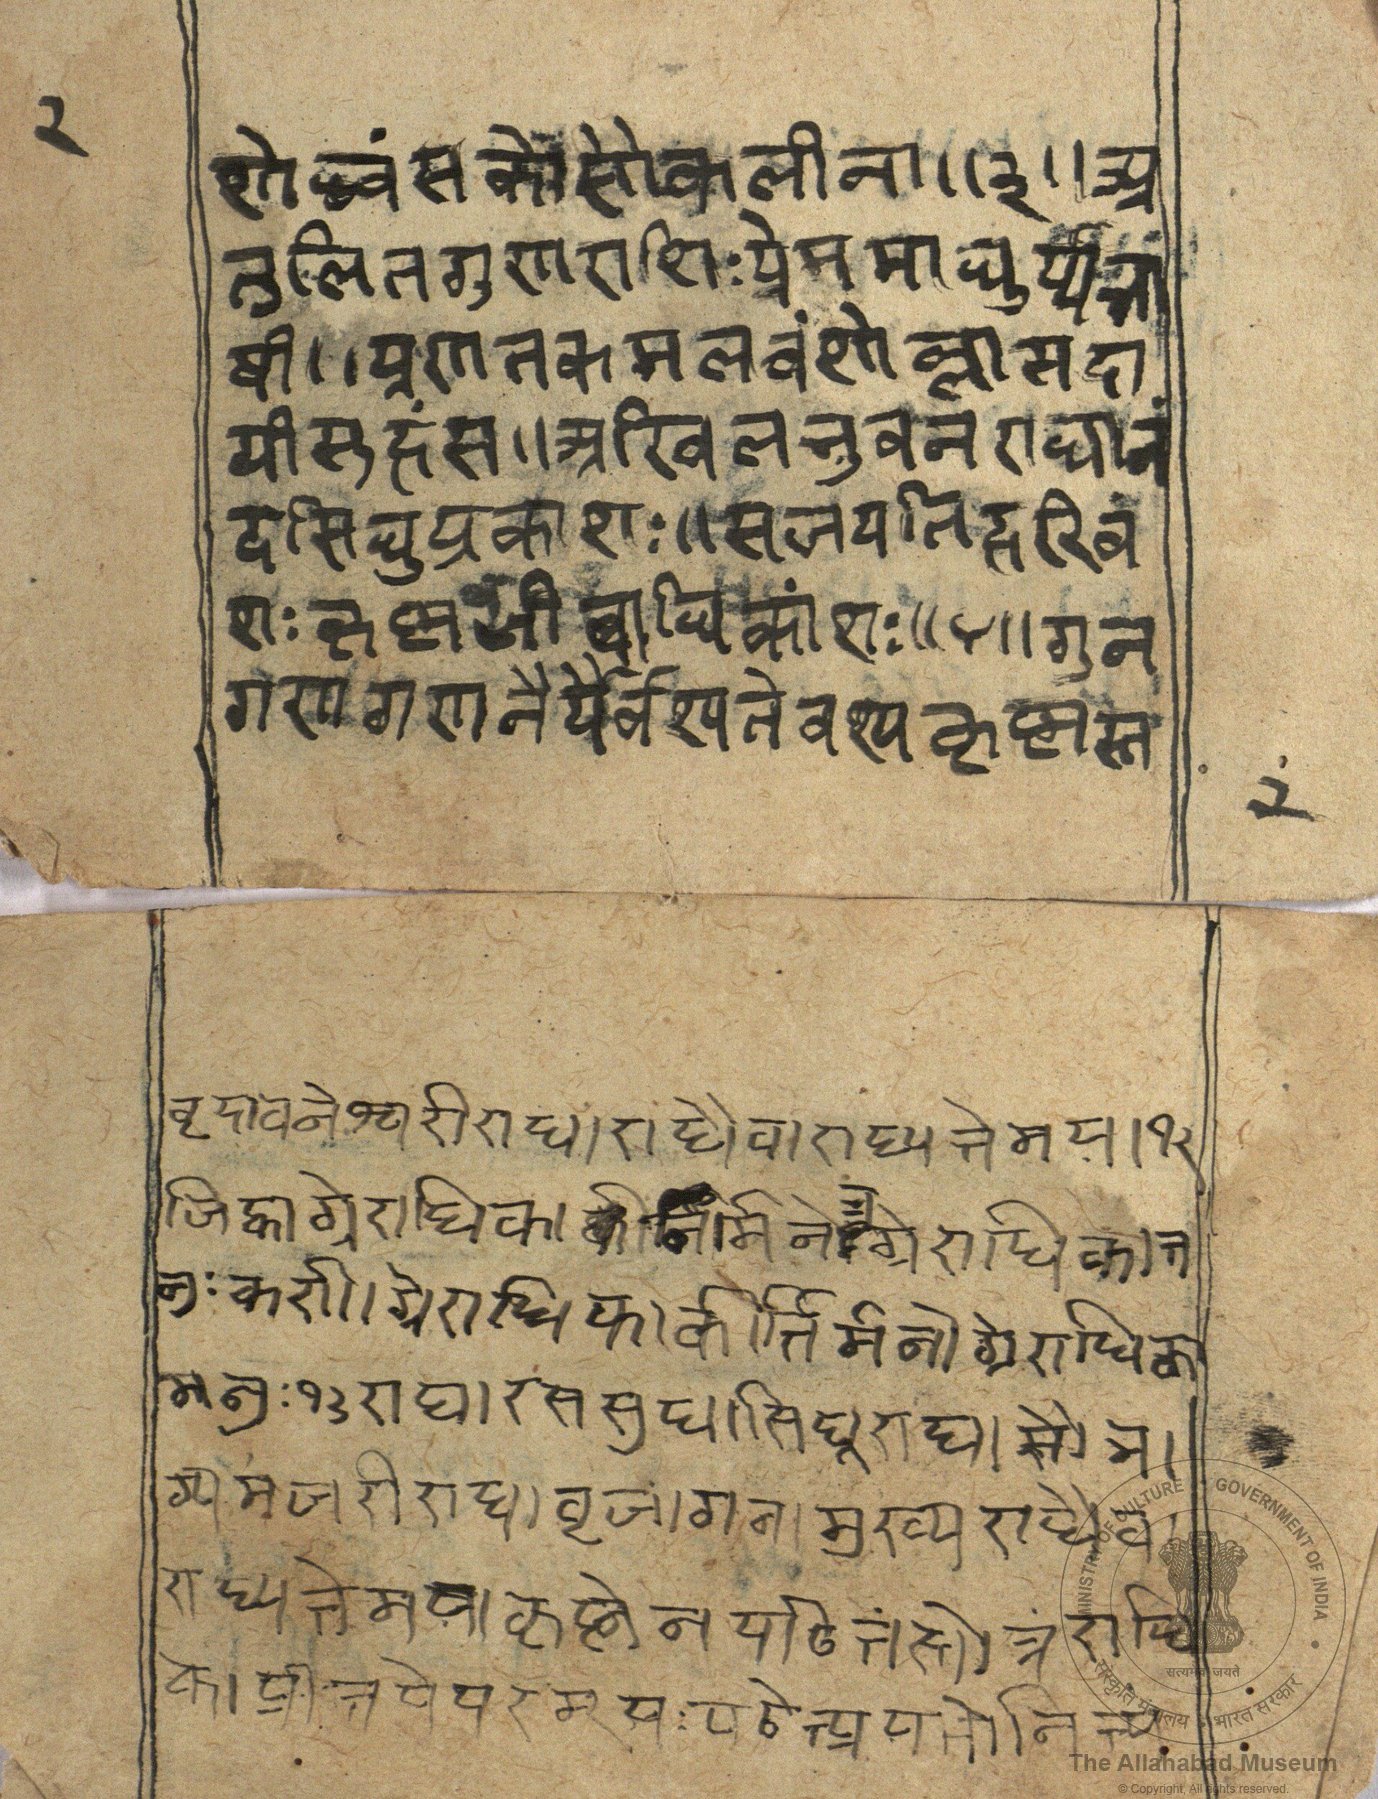 २
शो ध्वंसकोसोकलीना॥३॥अ
तुलितगुणराशिःप्रेममाधुर्यभा
षी॥प्रणतकमलवंशोल्लासदा
यीसुहंस॥अखिलभुवनराधानं
दसिंधुप्रकाशः॥सजयतिहरिवं
शःकृष्मजीवाधिकांशः॥४॥गुन
गणगणनैर्यैर्वश्यतेवश्यकृष्मस्त
२
वृदावनेश्वरीराधाराधैवाराध्यतेमया१२
जिह्वाग्रेराधिका नेत्रेग्रेराधिकात
नुःकर्णाग्रेराधिकाकीर्त्तिर्मनोग्रेराधिका
मनुः१३राधारससुधासिंधूराधासौभा
ग्यमंजरीराधावृजांगनामुख्यराधैवा
राध्यतेमयाकृष्णेनपठितंस्तोत्रंराधि
काप्रीतयेपरम्यःपठेत्प्रयतोनित्यं
MINISTRY OF CULTURE • GOVERNMENT OF INDIA
सत्यमेव जयते
संस्कृति मंत्रालय • भारत सरकार
The Allahabad Museum
© Copyright, All rights reserved.